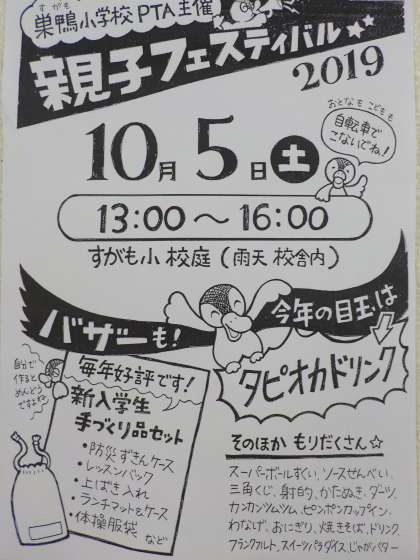 すがも
巣鴨小学校PTA主催
親子フェスティバル
2019
10月5日土
おとなも こどもも
自転車で
こないでね!
13:00～16:00
すがも小 校庭(雨天 校舎内)
バザーも!
今年の目玉は
タピオカドリンク
自分で
作ると
めんどう
ですよね
毎年好評です!
新入学生
手づくり品セット
・防災ずきんケース
・レッスンバック
・上ばき入れ
・ランチマット&ケース
・体操服袋 など
そのほか もりだくさん☆
スーパーボールすくい、ソースせんべい、
三角くじ、射的、かたぬき、ダーツ、
カンカンツムツム、ピンポンカップイン、
わなげ、おにぎり、焼きそば、ドリンク、
フランクフルト、スイーツパラダイス、じゃがバター